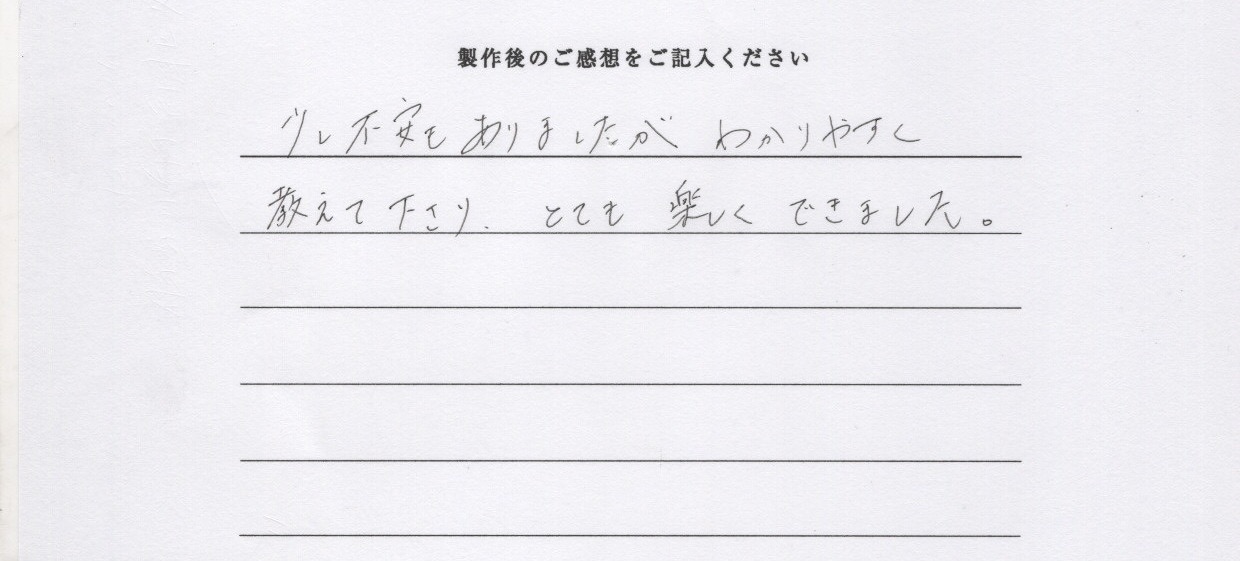 製作後のご感想をご記入ください
少し不安もありましたが わかりやすく
教えて下さり、とても 楽しく できました。